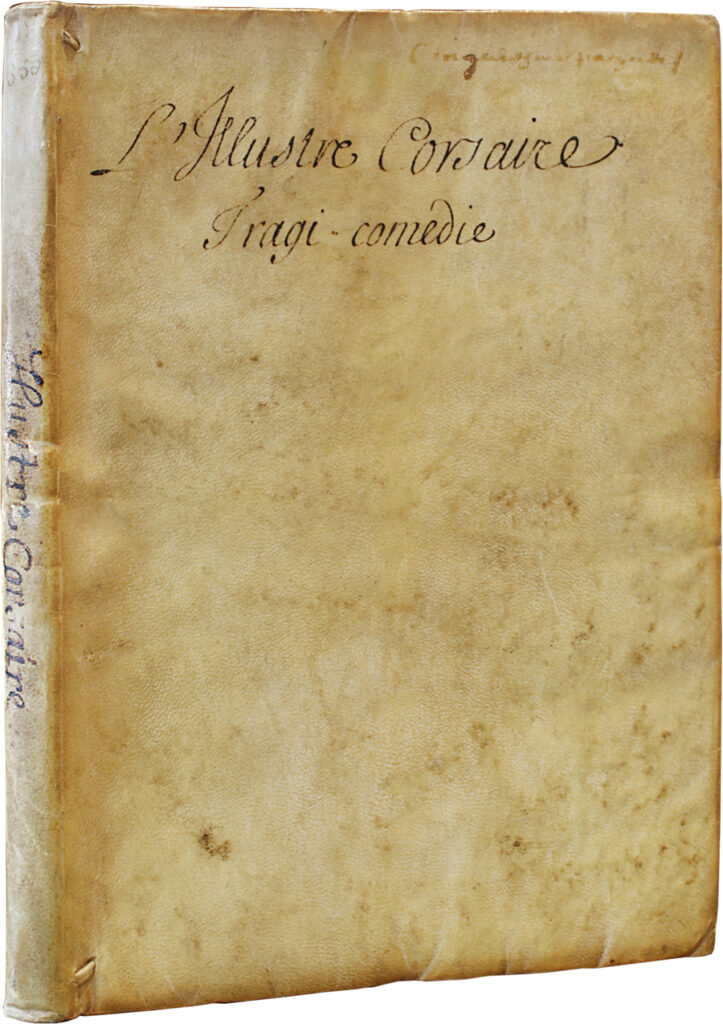 L'Illustre Corsaire
Tragi-comédie
Illustre Corsaire